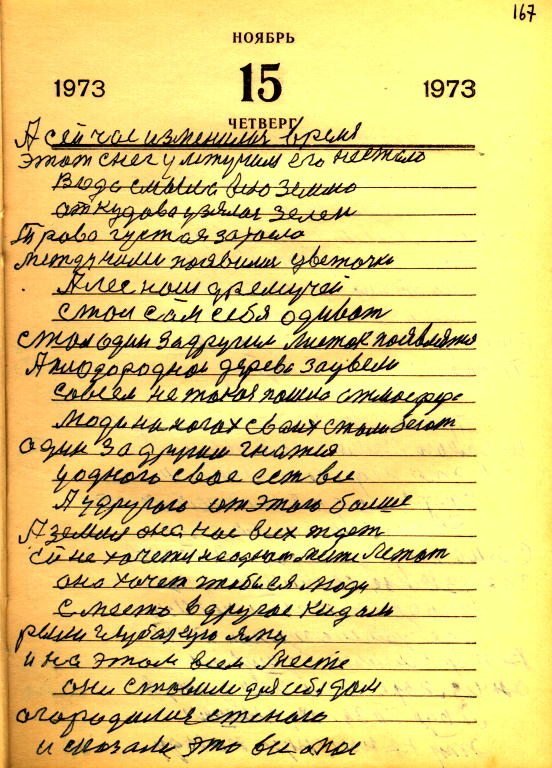 167
НОЯБРЬ
1973 15 1973
ЧЕТВЕРГ
А сейчас изменился время
Этот снег улетучился его нестало
Вода смыла всю землю
откудова узялас зелен
Трава густая заросла
между ними появился цветочки
А лес наш дремучей
стал сам себя одиват
стал один задругим листок появлятся
А плодородной дерева зацвели
совсем не такая пошла атмосфера
люди на ногах своих стали бегат
один за другим гнатся
у одного свое ест все
А удругого от этого болше
А земля она нас всех ждет
ей не хочется на одном месте летат
она хочет чтобы ся люди
с место в другое кидали
рыли глубокую яму
и на этом всем месте
они ставили для себя дом
огородилис стеного
и сказали это все мое